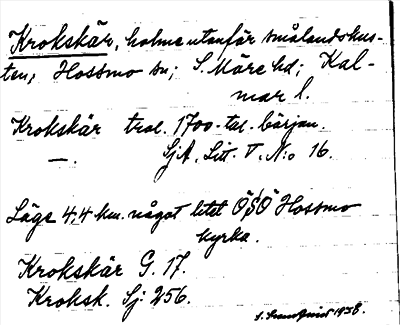 Krokskär, holme utanför smålandskus-
ten, Hossmo sn; S. Möre hd; Kal-
mar l.
Krokskär tral. 1700-tal. början.
—. SjA. Litt. V. N:o 16.
Läge 4,4 km. något litet ÖSÖ Hossmo
kyrka.
Krokskär G. 17.
Kroksk. Sj. 256.
1938.